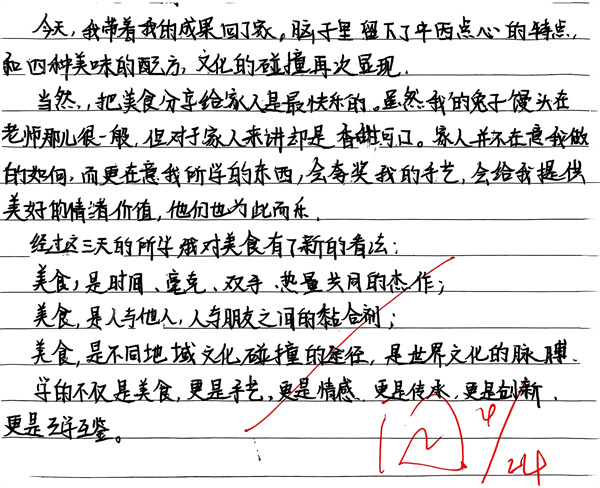 今天,我带着我的成果回了家。脑子里留下了中西点心的特点,
和四种美味的配方,文化的碰撞再次显现.
当然,把美食分享给家人是最快乐的。虽然我的兔子馒头在
老师那儿很一般,但对于家人来讲却是香甜可口。家人并不在意我做
的如何,而更在意我所学的东西,会夸奖我的手艺,会给我提供
美好的情绪价值,他们也为此而乐.
经过这三天的所学我对美食有了新的看法:
美食,是时间、毫克、双手、热量共同的杰作;
美食,是人与他人,人与朋友之间的黏合剂;
美食,是不同地域文化碰撞的途径,是世界文化的脉膊.
学的不仅是美食,更是手艺,更是情感,更是传承,更是创新,
更是互学互鉴。
4/24